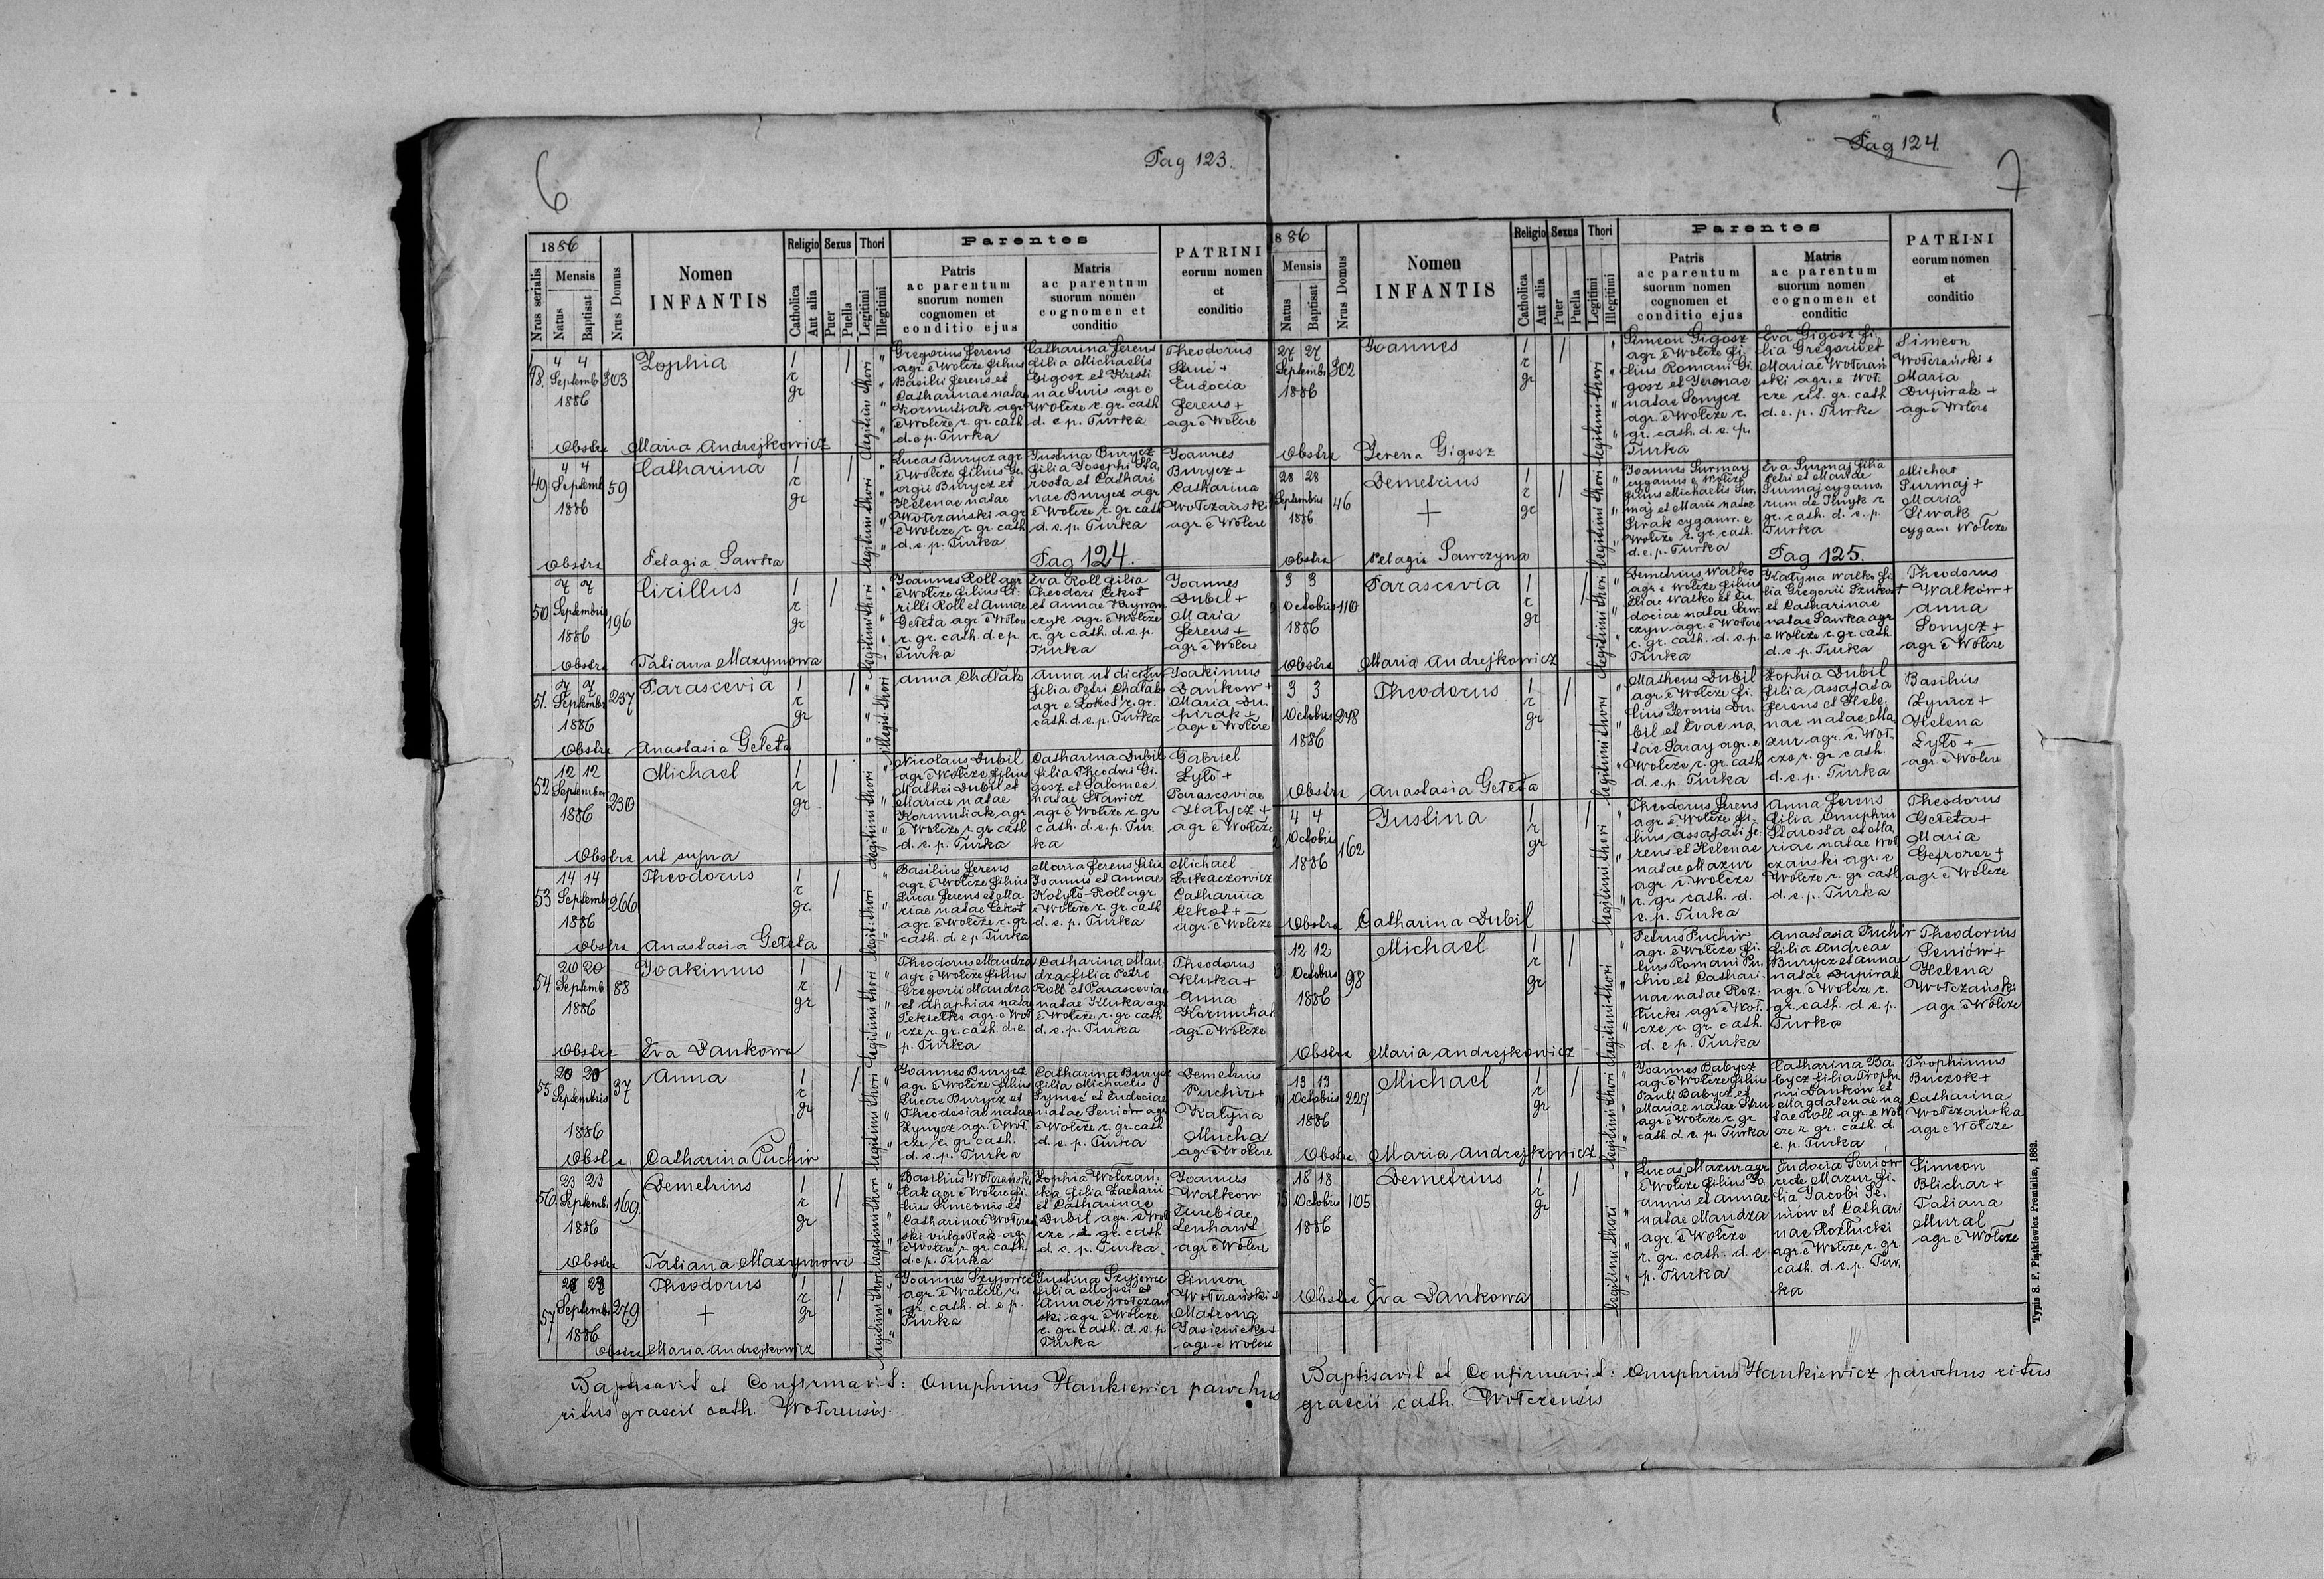 6
Pag 123.
1886
Nrus serialis
Mensis
Natus
Baptisat
Nrus Domus
Nomen
INFANTIS
Religio
Catholica
Aut alia
Sexus
Puer
Puella
Thori
Legitimi
Illegitimi
Parentes
Patris
ac parentum
suorum nomen
cognomen et
conditio ejus
Matris
ac parentum
suorum nomen
cognomen et
conditio
PATRINI
eorum nomen
et
conditio
4 4
Septemb
1886
303
Zophia
1
r
gr
1
legitimi thori
Gregorius Ferens
agr e Wołcze filius
Basilii Ferens et
Catharinae natae
Kormusiak agr
e Wołcze r. gr. cath
d. e p. Turka
Catharina Ferens
filia Michaelis
Gigosz et Kresti
nae Suris agr e
Wołcze r. gr. cath
d. e p. Turka
Theodorus
Struc +
Eudocia
Ferens +
agr e Wołcze
Obstre Maria Andrejkowicz
49
4 4
Septemb
1886
59
Catharina
1
r
gr
1
legitimi thori
Lucas Burycz agr
e Wołcze filius Ge
orgii Burycz et
Helenae natae
Wołczański agr
e Wołcze r. gr. cath
d. e. p. Turka
Justina Burycz
filia Josephi Sta
rosta et Cathari
nae Burycz agr
e Wołcze r. gr. cath
d. e. p. Turka
Joannes
Burycz +
Catharina
Wołczański
agr. e Wołcze
Obstre Pelagia Sawka
Pag 124.
50
7 7
Septembris
1886
196
Cirillus
1
r
gr
1
legitimi thori
Joannes Roll agr
e Wołcze filius Ci
rilli Roll et Annae
Geteta agr e Wołcze
r. gr. cath. d. e p.
Turka
Eva Roll filia
Theodori Cekot
et Annae
czyk agr. e Wołcze
r. gr cath. d. e. p.
Turka
Joannes
Dubil +
Maria
Ferens +
agr e Wołcze
Obstre Tatiana Maxymowa
51.
7 7
Septemb
1886
237
Parascevia
1
r
gr
1
illegit: thori
Anna Chdłak
Anna ut dictum
filia Petri Chałak
agr e Łokoł r. gr.
cath. d. e. p. Turka
Joakimus
Dańkow +
Maria Du
pirak +
agr e Wołcze
Obstre Anastasia Geteta
52
12 12
Septembr
1886
230
Michael
1
r
gr
1
legitimi thori
Nicolaus Dubil
agr e Wołcze filius
Mathei Dubil et
Mariae natae
Kormusiak agr
e Wołcze r. gr cath
d. e. p. Turka
Catharina Dubil
filia Theodori Gi
gosz et Salomea
natae Stawicz
agr e Wołcze r. gr
cath. d. e. p. Tur.
ka
Gabriel
Zyło +
Parasceviae
Hałycz +
agr e Wołcze
Obstre ut supra
53
14 14
Septemb
1886
266
Theodorus
1
r
gr
1
legit: thori
Basilius Ferens
agr. e Wołcze filius
Lucae Ferens et Ma
riae natae Cekot
agr. e Wołcze r. gr
cath. d. e p. Turka
Maria Ferens filia
Joannis et Annae
Kotyło-Roll agr.
e Wołcze r. gr. cath
d. e. p. Turka
Michael
Łukaczowicz
Catharina
Cekot +
agr. e Wołcze
Obstre Anastasia Geteta
54
20 20
Septemb
1886
88
Joakimus
1
r
gr
1
legitimi thori
Theodorus Mandza
agr e Wołcze filius
Gregorii Mandza
et Ahaphiae natae
Pekiełko agr. e Woł
cze r. gr. cath. d. e.
p. Turka
Catharina Man
dza filia Petri
Roll et Parasceviae
natae Kluka agr
e Wołcze r. gr cath
d. e. p. Turka
Theodorus
Kluka +
Anna
Kormuśiak
agr. e Wołcze
Obstre Eva Dankowa
55
20 20
Septembris
1886
37
Anna
1
r
gr
1
legitimi thori
Joannes Burycz
agr. e Wołcze filius
Lucae Burycz et
Theodosiae natae
Zynycz agr. e Woł.
cze r. gr. cath.
d. e. p. Turka
Catharina Burycz
filia Michaelis
Symeć et Eudociae
natae Seniów agr
e Wołcze r. gr. cath
d. e. p. Turka
Demetrius
Puchir +
Katyna
Mucha
agr e Wołcze
Obstre Catharina Puchir
56.
23 23
Septemb
1886
169.
Demetrius
1
r
gr
1
legitimi thori
Basilius Wołczański
Rak agr e Wołcze fi
lius Simeonis et
Catharinae Wołcza
ski vulgo Rak agr.
e Wołcze r. gr. cath.
d. e p. Turka
Zophia Wołczań
ska filia Zacharii
et Catharinae
Dubil agr. e Woł
cze r. gr. cath
d. e. p. Turka.
Joannes
Walkow
Eusebiae
Lenhart
agr e Wołcze
Obstre Tatiana Maxymowa
57
Septemb
1886
279
Theodorus
+
1
r
gr
1
legitimi thori
Joannes Szyjowic
agr. e Wołcze r.
gr. cath. d. e. p.
Turka
Justina Szyjowic
filia Mojsei et
Annae Wołczań
ski agr. e Wołcze
r. gr. cath. d. e. p.
Turka
Simeon
Wołczański +
Matrona
Jasienicka +
agr e Wołcze
Obstre Maria Andrejkowicz
Baptisavit et Confirmavit: Onuphrius Hankiewicz parochus
ritus graecii cath. Wołczensis.
7
Pag 124.
1886
Mensis
Natus
Baptisat
Nrus Domus
Nomen
INFANTIS
Religio
Catholica
Aut alia
Sexus
Puer
Puella
Thori
Legitimi
Illegitimi
Parentes
Patris
ac parentum
suorum nomen
cognomen et
conditio ejus
Matris
ac parentum
suorum nomen
cognomen et
conditio
PATRINI
eorum nomen
et
conditio
27 27
Septembr
1886
302
Joannes
1
r
gr
1
legitimi thori
Simeon Gigosz
agr e Wołcze fi
lius Romani Gi
gosz et Jerenae
natae Sonycz
agr. e Wołcze r.
gr. cath. d. e. p.
Turka
Eva Gigosz fi
lia Gregorii et
Mariae Wołczań
ski agr. e Woł.
cze rit. gr. cath
d. e. p. Turka
Simeon
Wołczański
Maria
Dupirak +
agr e Wołcze
Obstre Jerena Gigosz
28 28
Septembris
1886
46
Demetrius
+
1
r
gr
1
legitimi thori
Joannes Surmay
cyganus e Wołcze
filius Michaelis Sur.
maj et Maria natae
Siwak cyganor. e
Wołcze r. gr. cath.
d. e. p. Turka
Eva Surmaj filia
Petri et Mariae
Surmaj cygano
rum de Ilnyk r.
gr. cath. d. e. p.
Turka
Michas
Surmaj +
Maria
Siwak
cygani Wołcze
Obstre Pelagia Sawczyna
Pag 125.
3 3
Octobris
1886
110
Parascevia
1
r
gr
1
legitimi thori
Demetrius Walko
agr e Wołcze filius
Eliae Walko et Eu
dociae natae Saw.
czyn agr. e Wołcze
r. gr. cath. d. e. p.
Turka
Katyna Walko fi
lia Gregorii
et Catharinae
natae Sawka agr
e Wołcze r. gr. cath.
d. e. p. Turka
Theodorus
Walków +
Anna
Sonycz +
agr e Wołcze
Obstre Maria Andrejkowicz
3 3
Octobris
1886
248
Theodorus
1
r
gr
1
legitimi thori
Matheus Dubil
agr. e Wołcze fi
lius Jeronis Du
bil et Evae na
tae Saray agr. e
Wołcze r. gr. cath
d. e. p. Turka
Zophia Dubil
filia Assafata
Ferens et Hele
nae natae Ma
zur agr. e. Woł.
cze r. gr. cath.
d. e. p. Turka
Basilius
Zynicz +
Helena
Zyło +
agr e Wołcze
Obstre Anastasia Geteta
4 4
Octobris
1886
162
Justina
1
r
gr
1
legitimi thori
Theodorus Ferens
agr. e Wołcze fi.
lius Assafati Fe.
rens et Helenae
natae Mazur
agr. e. Wołcze
r. gr. cath. d.
e. p. Turka
Anna Ferens
filia Onuphrii
Starosta et Ma
riae natae Woł
czański agr. e
Wołcze r. gr. cath
d. e. p. Turka
Theodorus
Geteta +
Maria
Gefrorer +
agr e Wołcze
Obstre Catharina Dubil
12 12
Octobris
1886
98
Michael
1
r
gr
1
legitimi thori
Petrus Puchir
agr. e Wołcze fi.
lius Romani Pu.
chir et Cathari.
nae natae Roz.
łucki agr e Woł.
cze r. gr. cath.
d. e p. Turka
Anastasia Puchir
filia Andreae
Burycz et Anna
natae Dupirak
agr. e Wołcze r.
gr. cath. d. e. p.
Turka
Theodorius
Seniów +
Helena
Wołczański
agr e Wołcze
Obstre Maria Andrejkowicz
13 13
Octobris
1886
227
Michael
1
r
gr
1
legitimi thori
Joannes Babycz
agr e Wołcze filius
Pauli Babycz et
Mariae natae Struc
agr e Wołcze r. gr
cath. d. e. p. Turka
Catharina Ba.
bycz filia Trophi
mi Dańków et
Magdalenae na
tae Roll agr. e Woł
cze r. gr. cath. d.
e. p. Turka
Trophimus
Buczok +
Catharina
Wołczańska
agr e Wołcze
Obstre Maria Andrejkowicz
18 18
Octobris
1886
105
Demetrius
1
r
gr
1
legitimi thori
Lucas Mazur agr
e Wołcze filius Jo.
annis et Annae
natae Mandza
agr. e Wołcze
r. gr. cath. d. e
p. Turka
Eudocia Seniów
recte Mazur fi.
lia Jacobi Se.
niów et Cathari
nae Rozłucki
agr. e Wołcze r. gr.
cath. d. e. p. Tur.
ka
Simeon
Blichar +
Tatiana
Mural
agr e Wołcze
Obstre Eva Dankowa
Baptisavit et Confirmavit: Onuphrius Hankiewicz parochus ritus
graecii cath. Wołczensis
Typis S. F. Piątkiewicz Premisliæ, 1882.